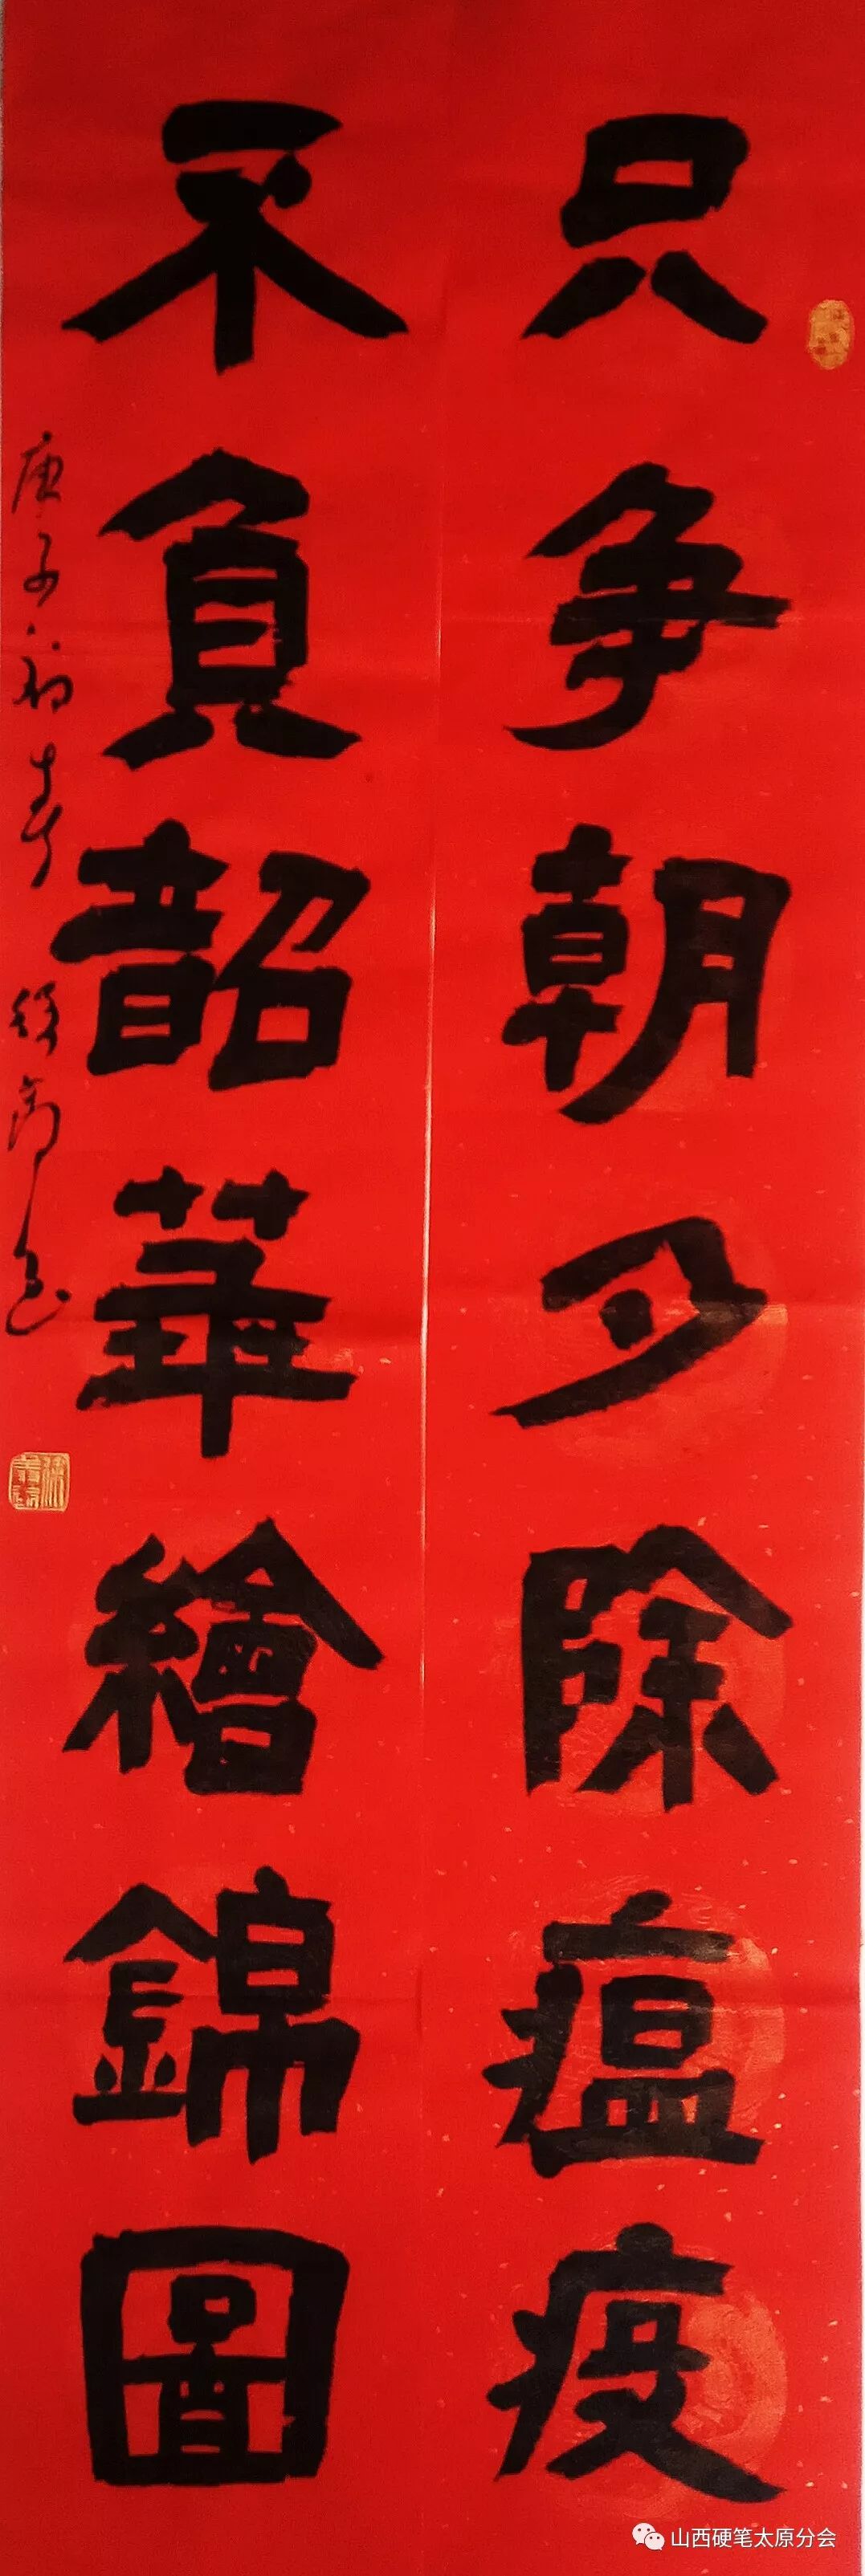 只争朝夕除瘟疫
不負韶華繪錦圖
庚子初春
山西硬笔太原分会